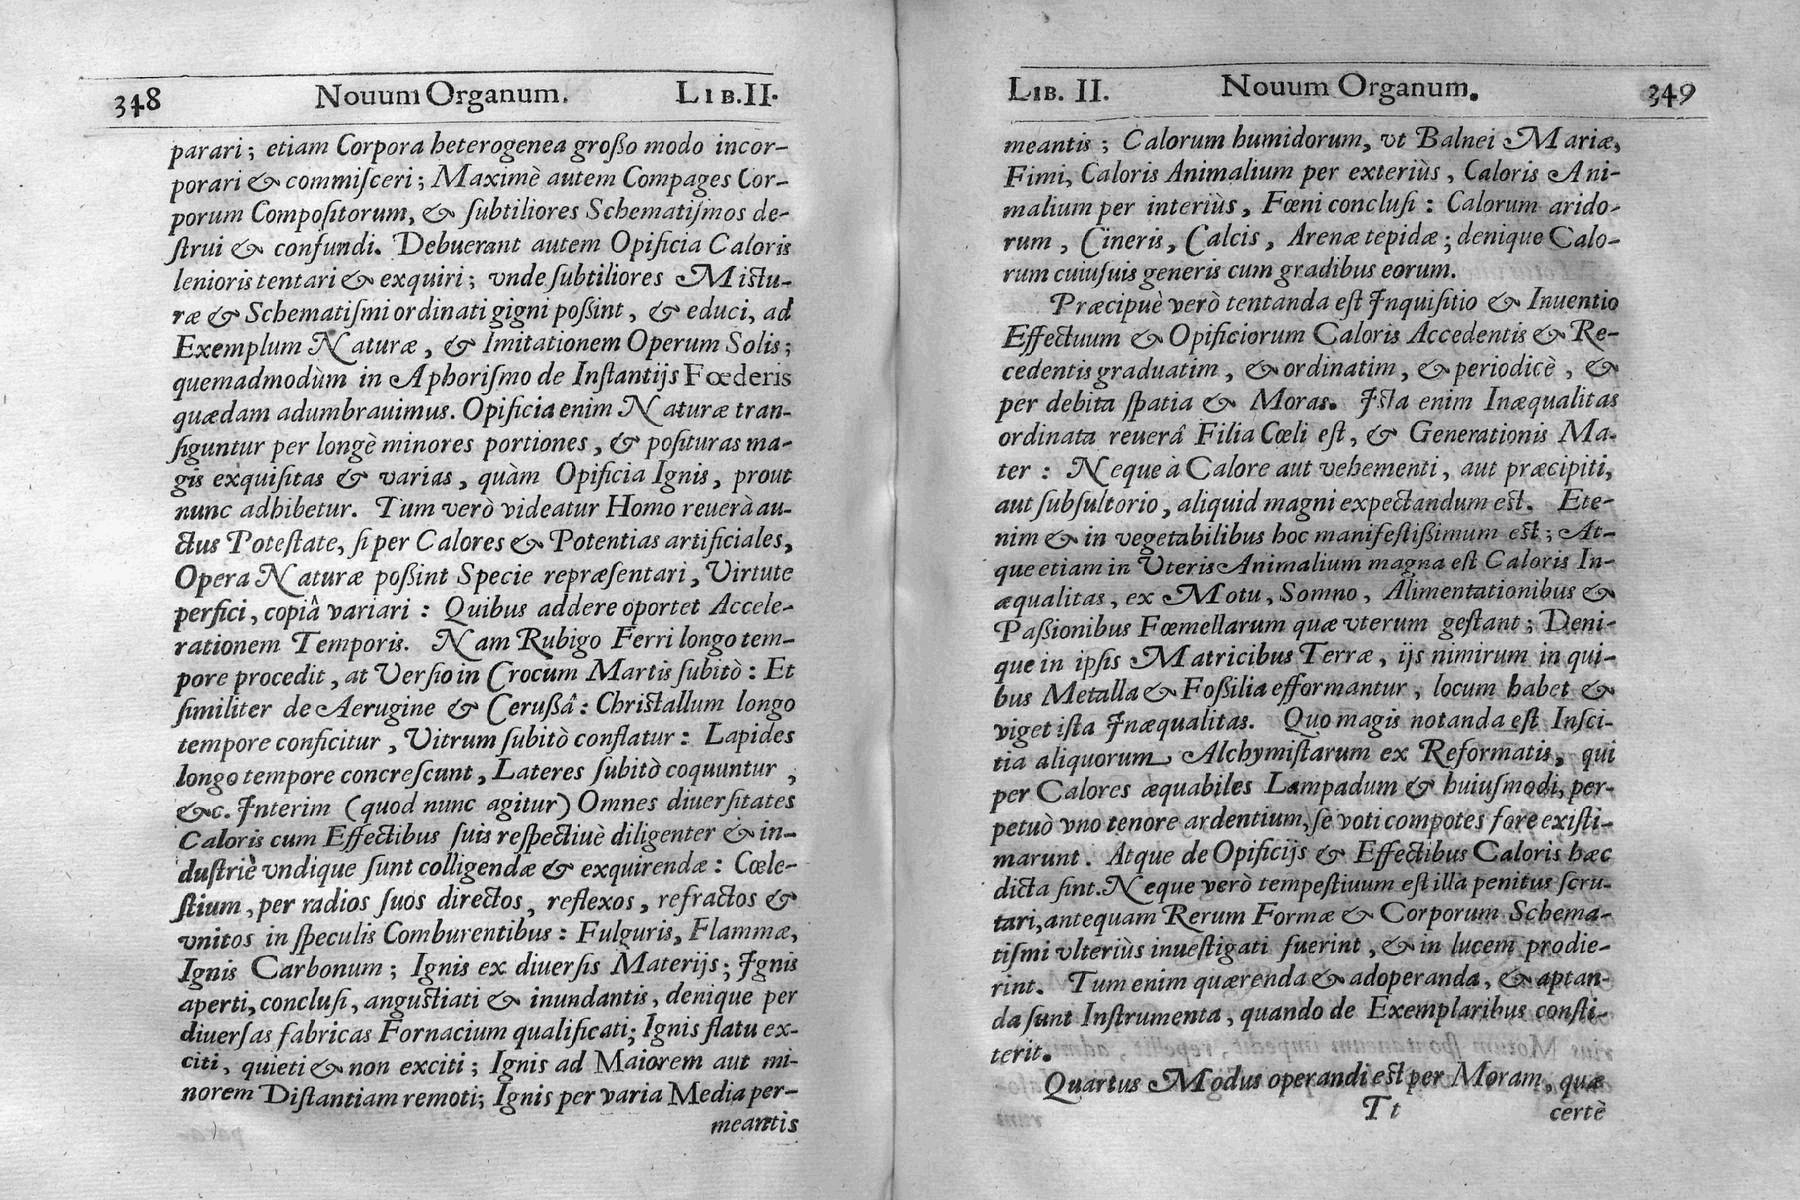 348 Nouum Organum. LIB.II.
parari; etiam Corpora heterogenea großo modo incor-
porari & commiſceri; Maximè autem Compages Cor-
porum Compoſitorum, & ſubtiliores Schematiſmos de-
ſtrui & confundi. Debuerant autem Opificia Caloris
lenioris tentari & exquiri; vnde ſubtiliores Mistu-
ræ & Schematiſmi ordinati gigni poßint, & educi, ad
Exemplum Naturæ, & Imitationem Operum Solis;
quemadmodùm in Aphoriſmo de Inſtantijs Fœderis
quædam adumbrauimus. Opificia enim Naturæ tran-
ſiguntur per longè minores portiones, & poſituras ma-
gis exquiſitas & varias, quàm Opificia Ignis, prout
nunc adhibetur. Tum verò videatur Homo reuerà au-
ctus Poteſtate, ſi per Calores & Potentias artificiales,
Opera Naturæ poßint Specie repræſentari, Virtute
perfici, copiâ variari: Quibus addere oportet Accele-
rationem Temporis. Nam Rubigo Ferri longo tem-
pore procedit, at Verſio in Crocum Martis ſubitò: Et
ſimiliter de Aerugine & Cerußâ: Christallum longo
tempore conficitur, Vitrum ſubitò conflatur: Lapides
longo tempore concreſcunt, Lateres ſubitò coquuntur,
&c. Interim (quod nunc agitur) Omnes diuerſitates
Caloris cum Effectibus ſuis reſpectiuè diligenter & in-
duſtriè vndique ſunt colligendæ & exquirendæ: Cœle-
ſtium, per radios ſuos directos, reflexos, refractos &
vnitos in ſpeculis Comburentibus: Fulguris, Flammæ,
Ignis Carbonum; Ignis ex diuerſis Materijs; Ignis
aperti, concluſi, anguſtiati & inundantis, denique per
diuerſas fabricas Fornacium qualificati; Ignis flatu ex-
citi, quieti & non exciti; Ignis ad Maiorem aut mi-
norem Diſtantiam remoti; Ignis per varia Media per-
meantis
LIB. II. Nouum Organum. 349
meantis; Calorum humidorum, vt Balnei Mariæ,
Fimi, Caloris Animalium per exteriùs, Caloris Ani-
malium per interiùs, Fœni concluſi: Calorum arido-
rum, Cineris, Calcis, Arenæ tepidæ; denique Calo-
rum cuiuſuis generis cum gradibus eorum.
Præcipuè verò tentanda eſt Inquiſitio & Inuentio
Effectuum & Opificiorum Caloris Accedentis & Re-
cedentis graduatim, & ordinatim, & periodicè, &
per debita ſpatia & Moras. Ista enim Inæqualitas
ordinata reuerâ Filia Cœli eſt, & Generationis Ma-
ter: Neque à Calore aut vehementi, aut præcipiti,
aut ſubſultorio, aliquid magni expectandum est. Ete-
nim & in vegetabilibus hoc manifeſtißimum est; At-
que etiam in Vteris Animalium magna est Caloris In-
æqualitas, ex Motu, Somno, Alimentationibus &
Paßionibus Fœmellarum quæ vterum geſtant; Deni-
que in ipſis Matricibus Terræ, ijs nimirum in qui-
bus Metalla & Foßilia efformantur, locum habet &
viget iſta Inæqualitas. Quo magis notanda eſt Inſci-
tia aliquorum Alchymiſtarum ex Reformatis, qui
per Calores æquabiles Lampadum & huiuſmodi, per-
petuò vno tenore ardentium, ſe voti compotes fore exiſti-
marunt. Atque de Opificijs & Effectibus Caloris hæc
dicta ſint. Neque verò tempeſtiuum eſt illa penitus ſcru-
tari, antequam Rerum Formæ & Corporum Schema-
tiſmi vlteriùs inueſtigati fuerint, & in lucem prodie-
rint. Tum enim quærenda & adoperanda, & aptan-
da ſunt Inſtrumenta, quando de Exemplaribus conſti-
terit.
Quartus Modus operandi est per Moram, quæ
Tt certè